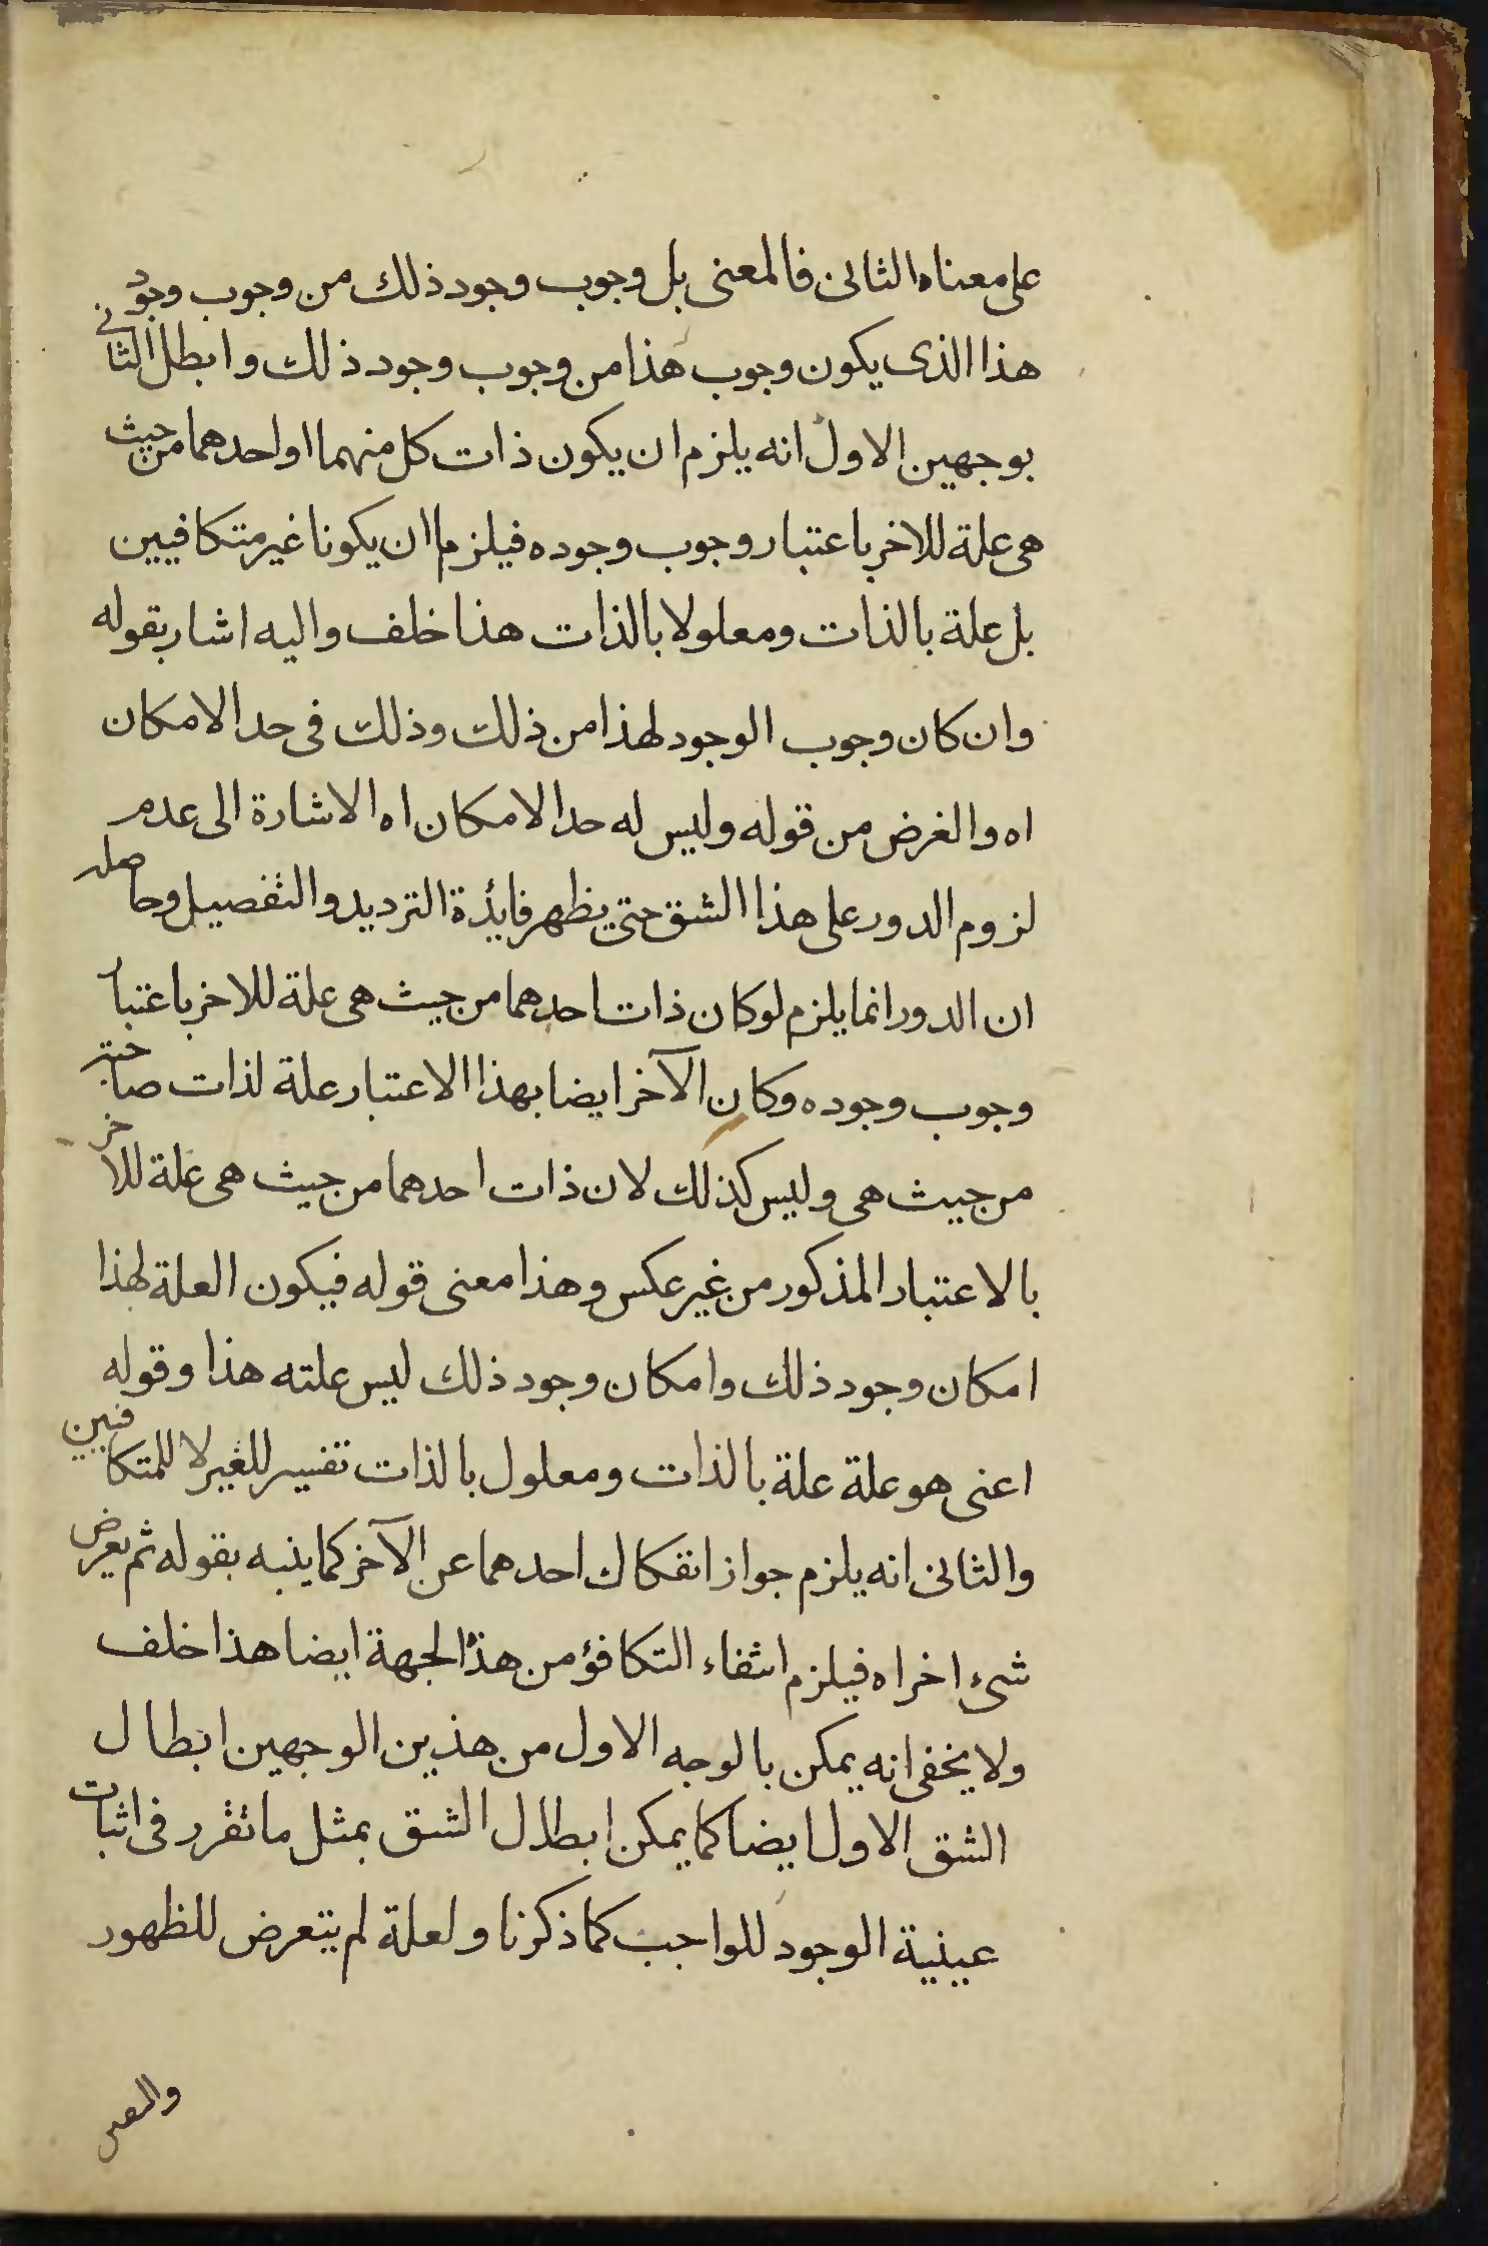 على معناه الثانى فالمعنى بل وجوب وجود ذلك من وجوب وجود
هذا الذى يكون وجوب هذا من وجوب وجود ذلك وابطل الثانى
بوجهين الاول انه يلزم ان يكون ذات كل منهما او احدهما من حيث
هى علة للاخر باعتبار وجوب وجوده فيلزم ان يكونا غير متكافيين
بل علة بالذات ومعلولا بالذات هذا خلف واليه اشار بقوله
وان كان وجوب الوجود لهذا من ذلك وذلك فى حد الامكان
اه والغرض من قوله وليس له حد الامكان اه الاشارة الى عدم
لزوم الدور على هذا الشق حتى يظهر فايدة الترديد والتفصيل وحاصله
ان الدور انما يلزم لو كان ذات احدهما من حيث هى علة للاخر باعتبار
وجوب وجوده وكان الآخر ايضا بهذا الاعتبار علة لذات صاحبه
من حيث هى وليس كذلك لان ذات احدهما من حيث هى علة للاخر
بالاعتبار المذكور من غير عكس وهذا معنى قوله فيكون العلة لهذا
امكان وجود ذلك وامكان وجود ذلك ليس علته هذا وقوله
اعنى هو علة علة بالذات ومعلول بالذات تفسير للغير لا للمتكافيين
والثانى انه يلزم جواز انفكاك احدهما عن الآخر كما ينبه بقوله ثم يعرض
شىء اخر اه فيلزم انتفاء التكافؤ من هذه الجهة ايضا هذا خلف
ولا يخفى انه يمكن بالوجه الاول من هذين الوجهين ابطال
الشق الاول ايضا كما يمكن ابطال الشق بمثل ما تقرر فى اثبات
عينية الوجود للواجب كما ذكرنا ولعلة لم يتعرض للظهور